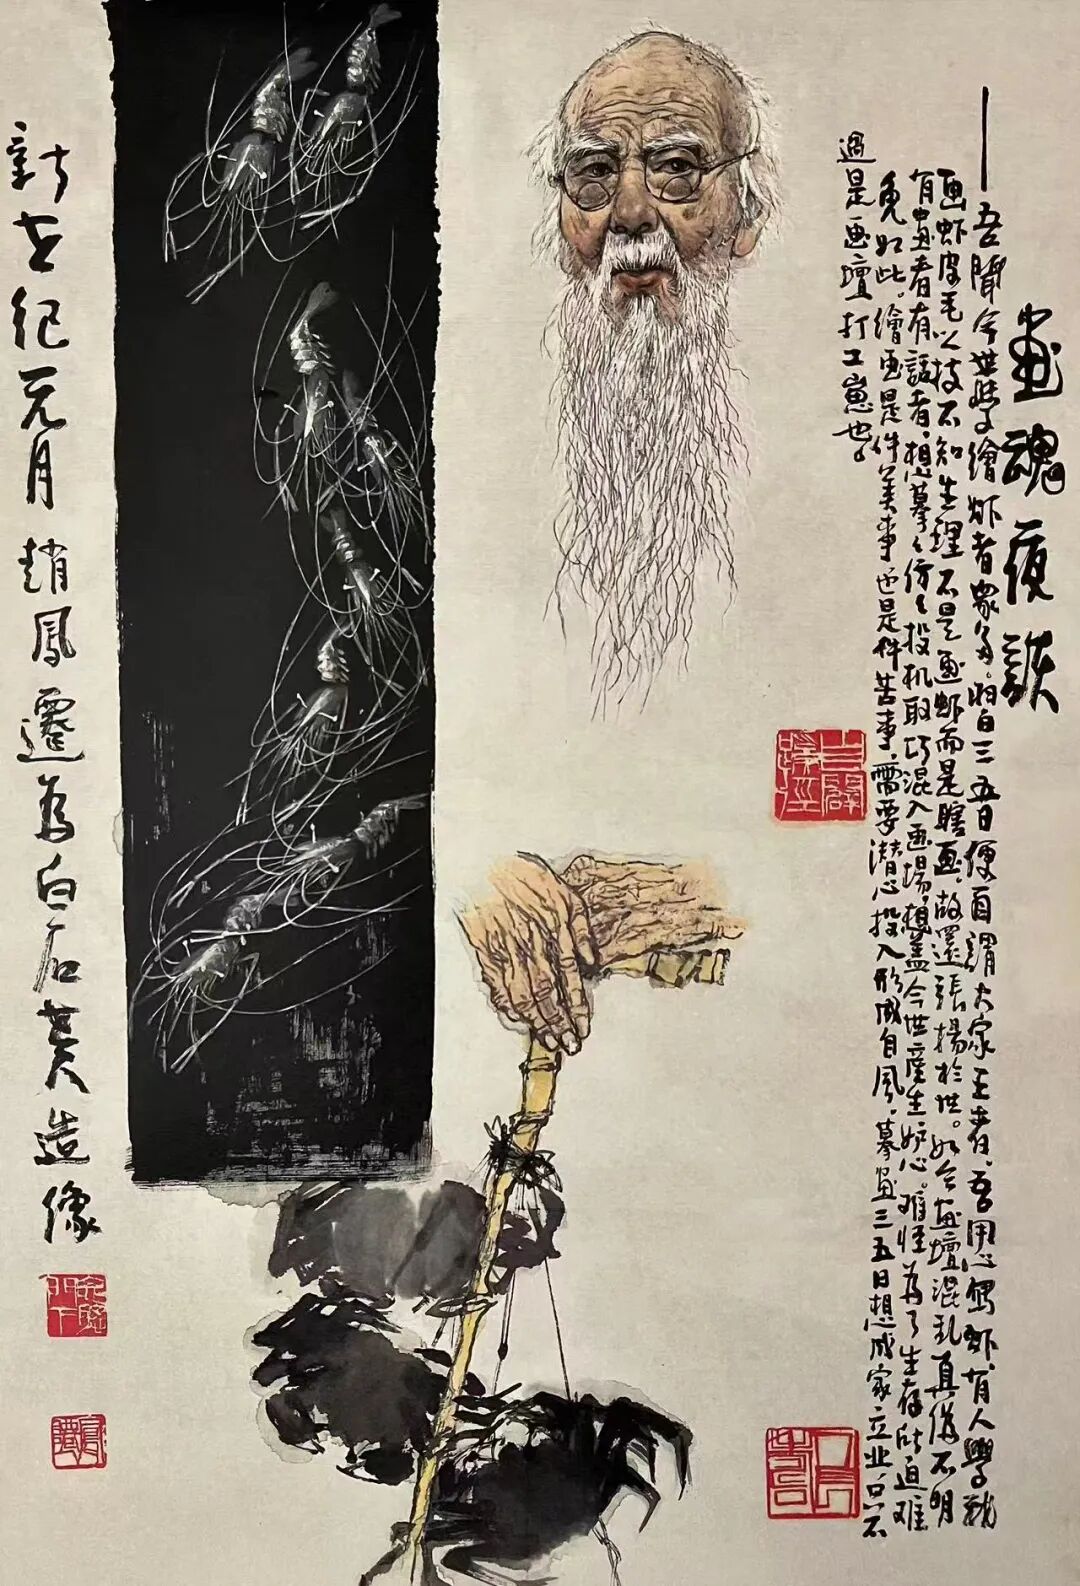 畫魂夜談
——吾聞今世學繪虾者眾多。習白三五日便自謂大家王者。吾用心寫虾，有人學戲
画虾皮毛以技不知生理不是画虾而是瞎画，故還張揚於世。如今画壇混乱真偽不明
有畫者有話者，想摹〻仿〻投机取巧混入画場，想蓋今世產生妒心。难怪為了生存所迫难
免如此。繪画是件美事也是件苦事，需要潜心投入形成自風，摹画三五日想成家立业只不
過是画壇打工崽也。
新世纪元月趙鳳遷為白石老人造像